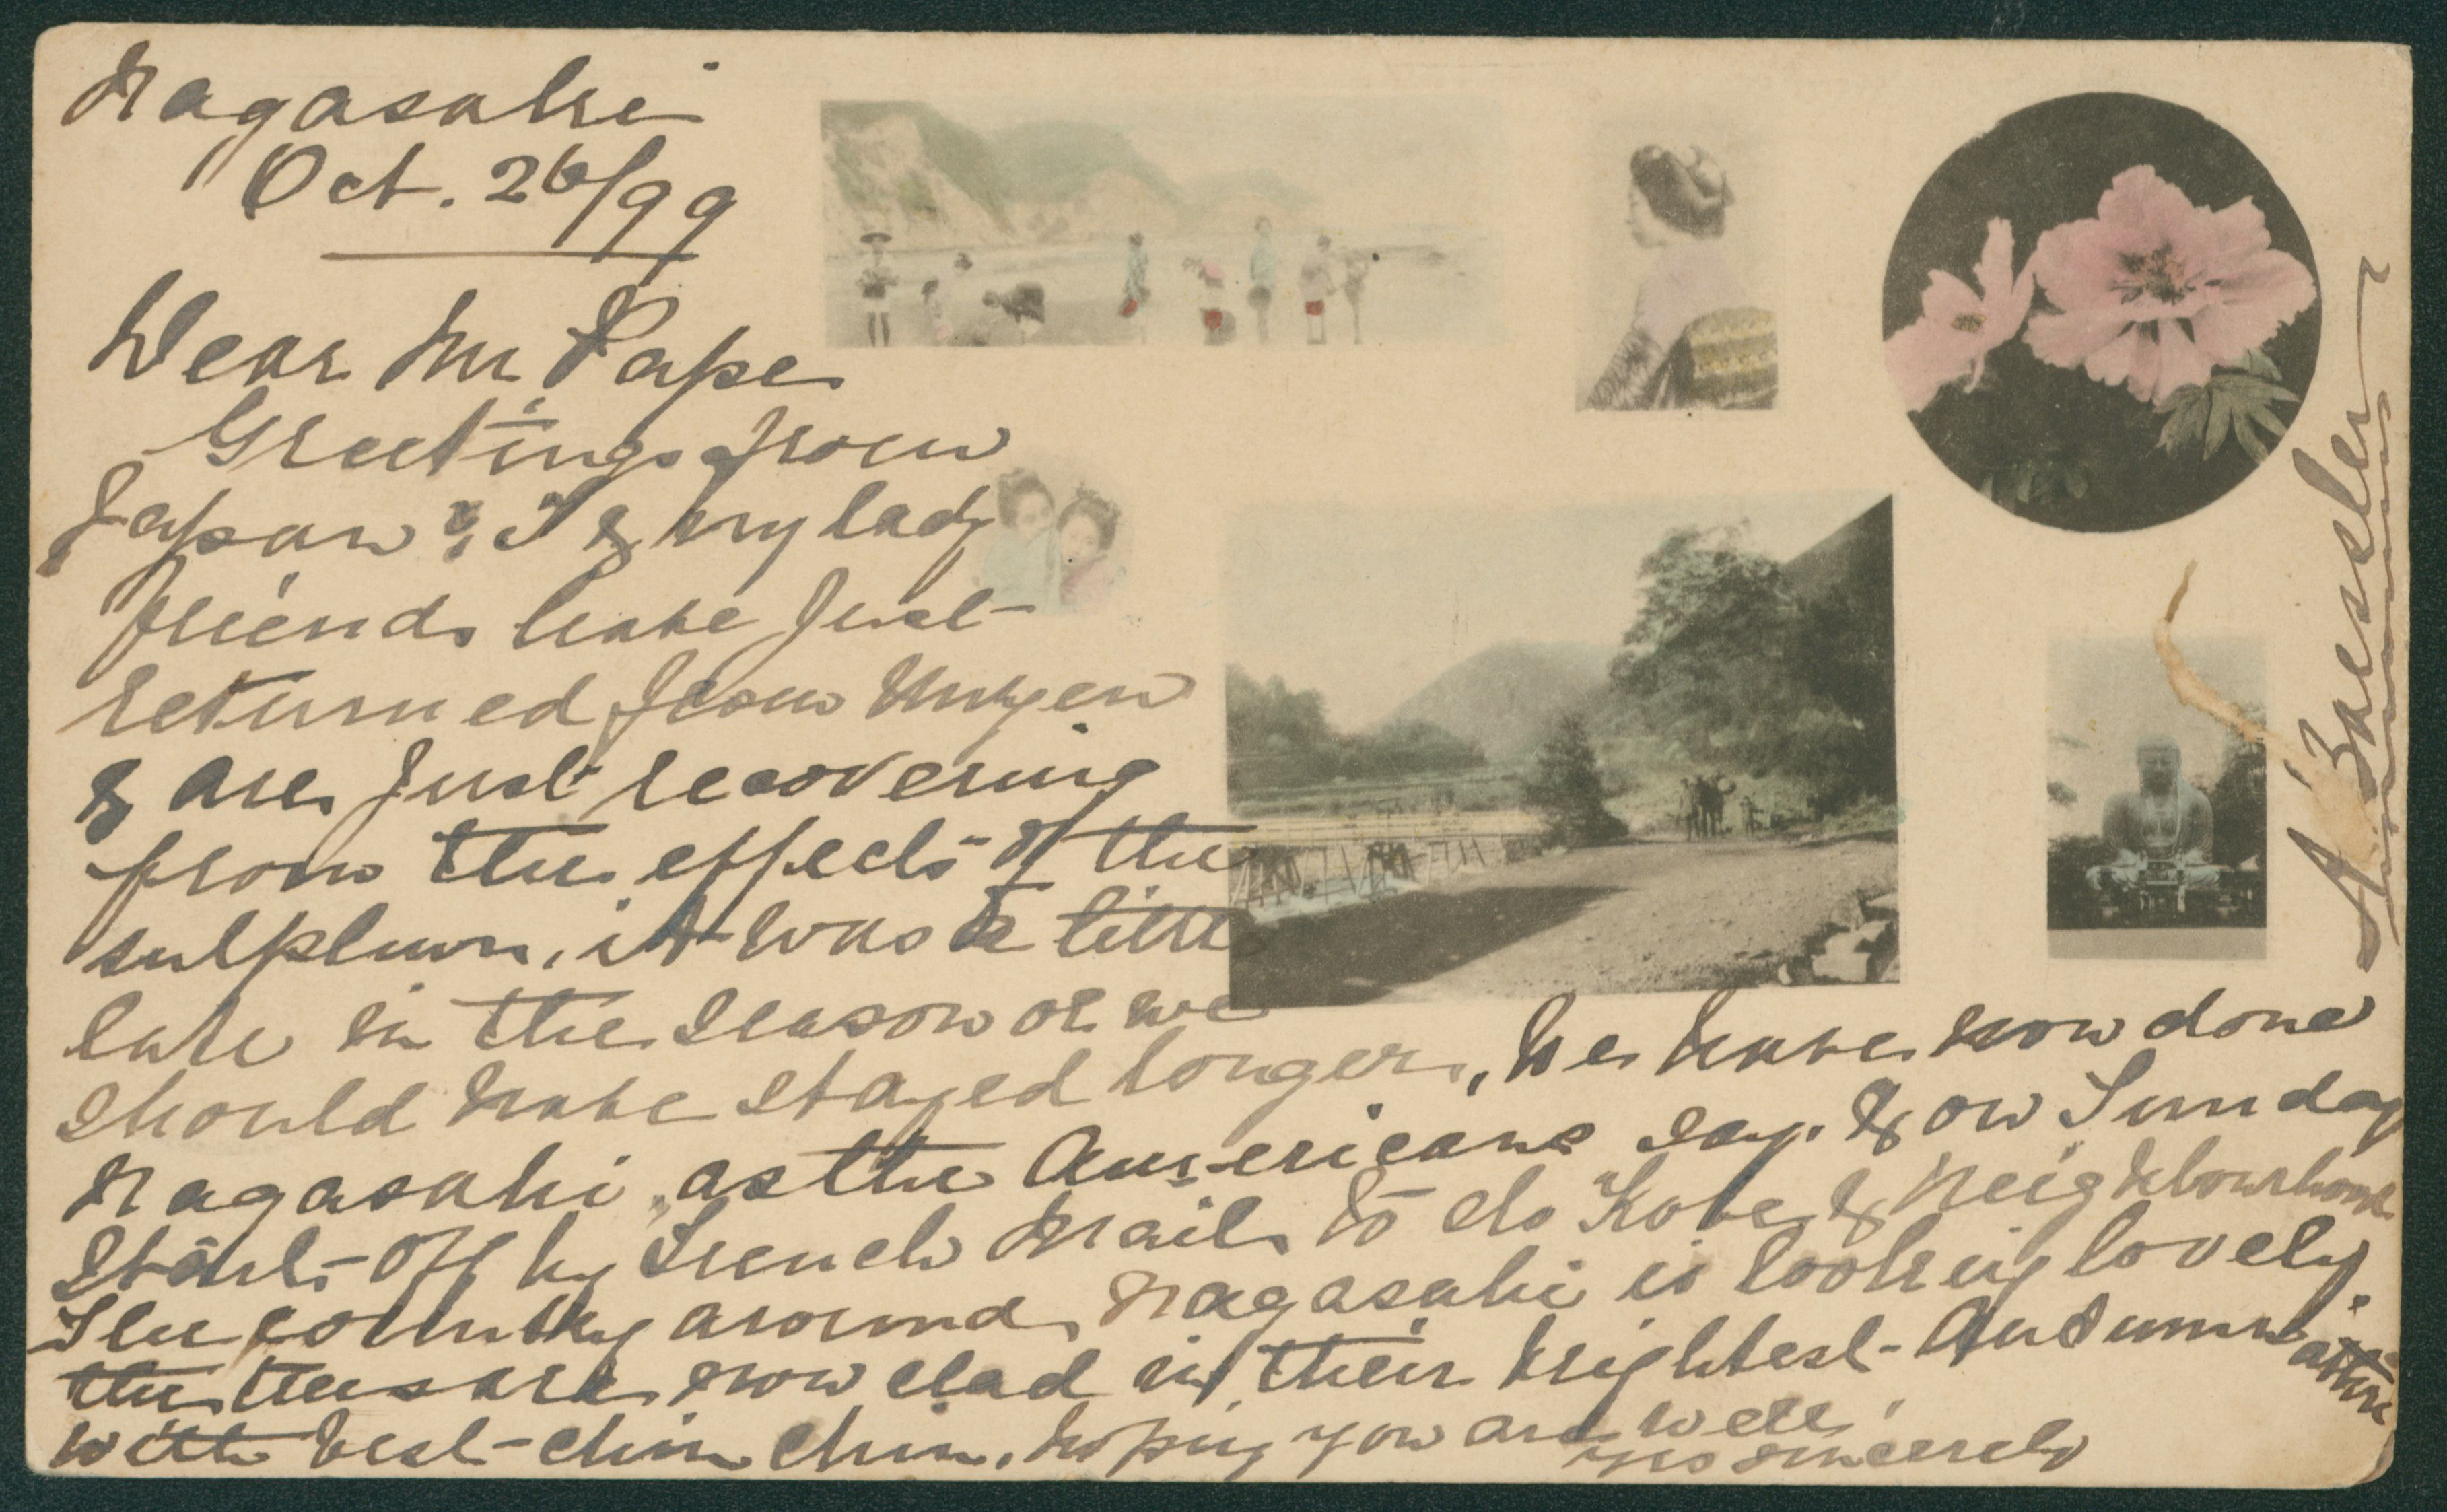 Nagasaki
Oct. 26/99
Dear Mr. Pape
Greetings from
Japan! I & my lady
friends have just
returned from Unzen
& are just recovering
from the effects of the
sulphur, it was a little
late in the season or we
should have stayed longer, We have now done
Nagasaki, as the Americans say. & on Sunday
start off by French Mail to do Kobe & Neighbourhood
The country around Nagasaki is looking lovely.
the trees are now clad in their brightest Autumn attire
with best chin chin, hoping you are well,
yrs sincerely
A Baessler